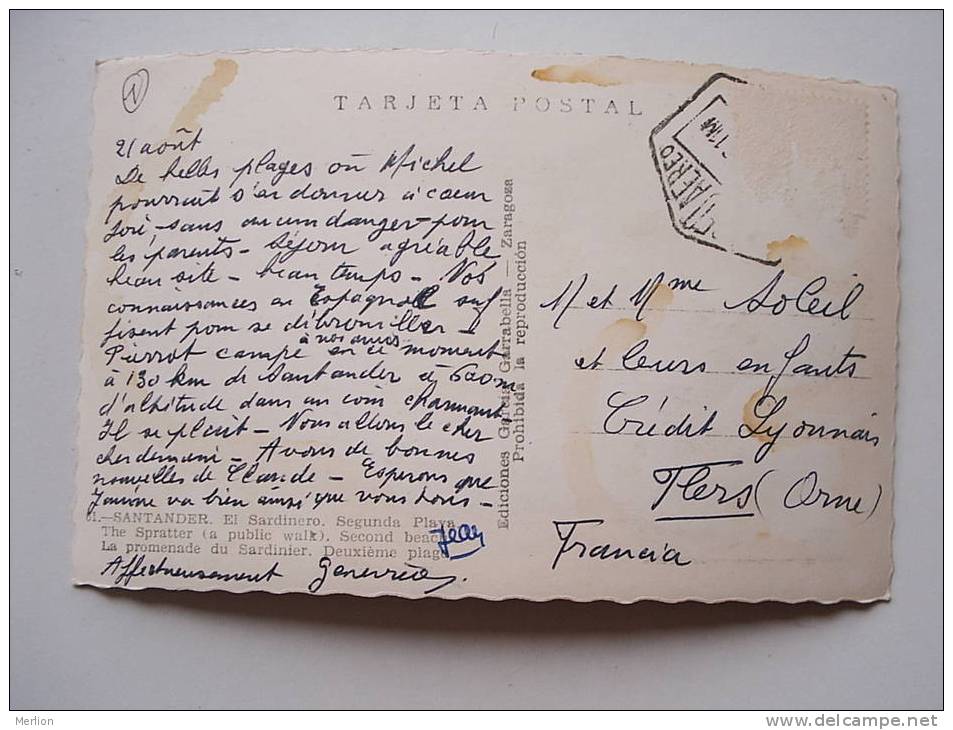 TARJETA POSTAL
21 août
De belles plages où Michel
pourrait s'en donner à coeur
joie - sans aucun danger - pour
les parents - Séjour agréable
beau site - beau temps - Nos
connaissances en Espagnol suf
fisent pour se débrouiller -
à nos amies
Pierrot campe en ce moment
à 130 km de Santander à 600 m
d'altitude dans un coin charmant
Il se plaît - Nous allons le cher
cher demain - Avons de bonnes
nouvelles de Claude - Espérons que
va bien ainsi que vous tous -
61.—SANTANDER. El Sardinero. Segunda Playa
The Spratter (a public walk). Second beach
La promenade du Sardinier. Deuxième plage
Jean
Affectueusement Geneviève
Ediciones García Garrabella — Zaragoza
Prohibida la reproducción
AEREO
M et Mme Soleil
et leurs enfants
Crédit Lyonnais
Flers (Orne)
Francia
Merlion
http://www.delcampe.net